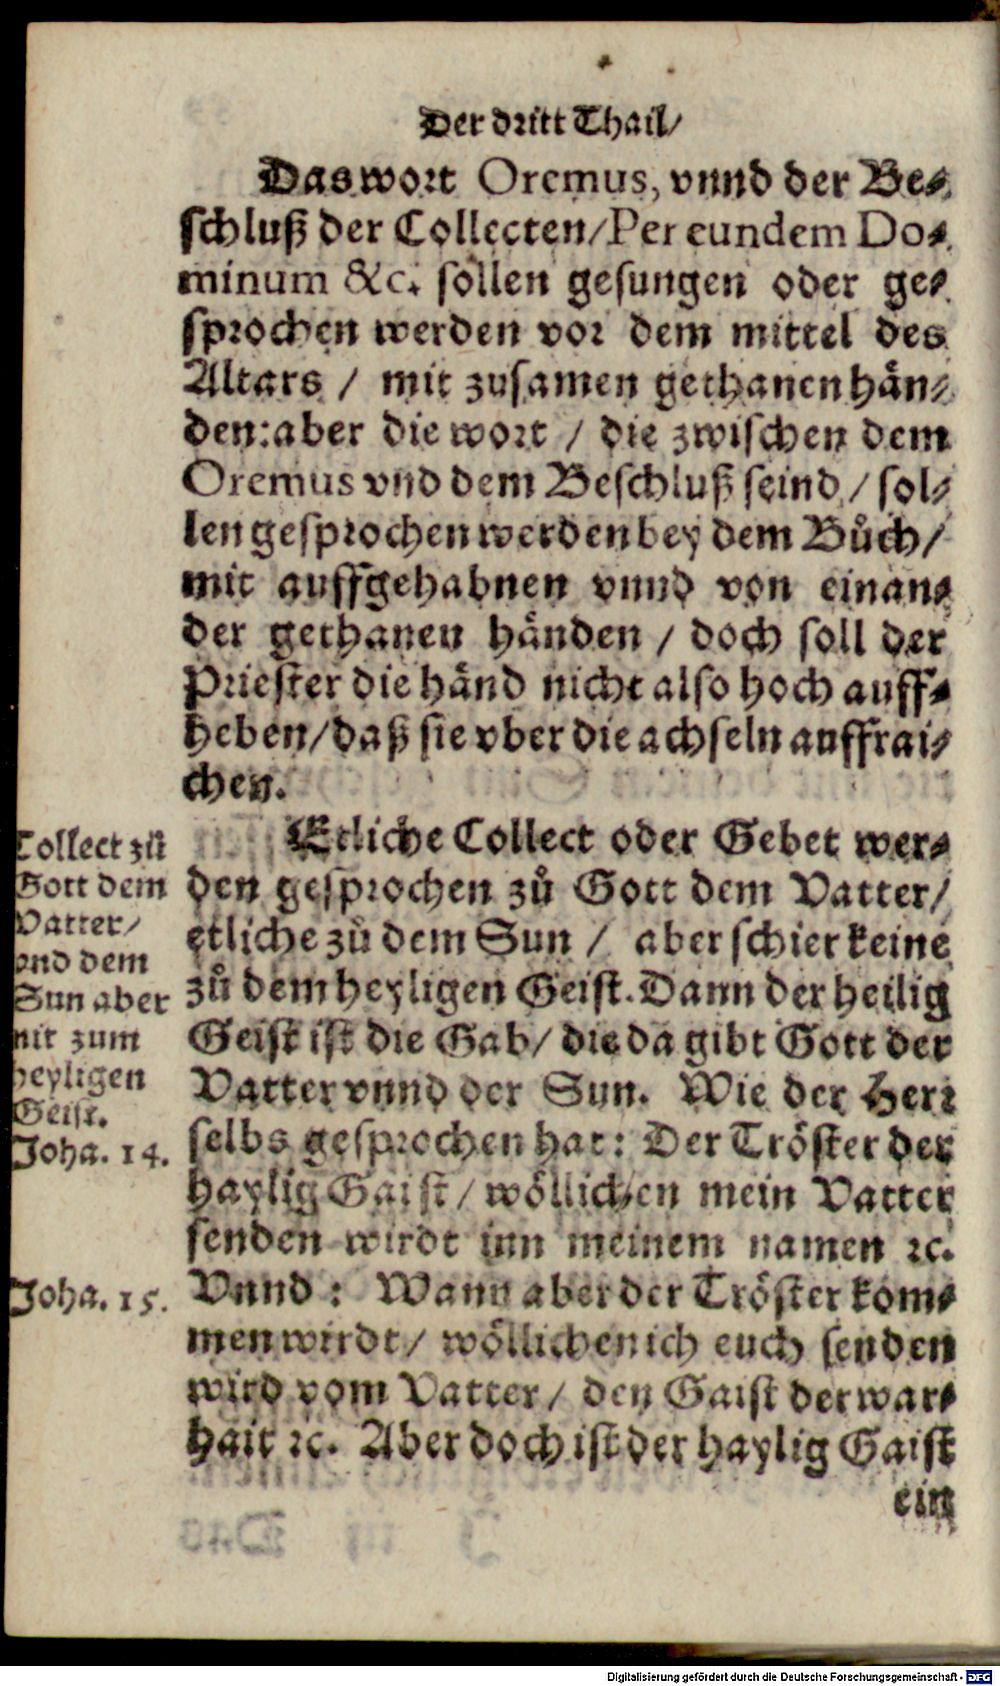 Der dritt Thail/
Das wort Oremus, vnnd der Be-
schluß der Collecten/Per eundem Do-
minum &c. sollen gesungen oder ge-
sprochen werden vor dem mittel des
Altars / mit zusamen gethanen hän-
den: aber die wort / die zwischen dem
Oremus vnd dem Beschluß seind / sol-
len gesprochen werden bey dem Bůch/
mit auffgehabnen vnnd von einan-
der gethanen händen / doch soll der
Priester die händ nicht also hoch auff-
heben/daß sie vber die achseln auffrai-
chen.
Etliche Collect oder Gebet wer-
den gesprochen zů Gott dem Vatter/
etliche zů dem Sun / aber schier keine
zů dem heyligen Geist. Dann der heilig
Geist ist die Gab/ die da gibt Gott der
Vatter vnnd der Sun. Wie der Herr
selbs gesprochen hat: Der Tröster der
haylig Gaist / wöllichen mein Vatter
senden wirdt inn meinem namen ꝛc.
Vnnd : Wann aber der Tröster kom-
men wirdt/ wöllichen ich euch senden
wird vom Vatter/ den Gaist der war-
hait ꝛc. Aber doch ist der haylig Gaist
ein
Collect zů
Gott dem
Vatter/
vnd dem
Sun aber
nit zum
heyligen
Geist.
Joha. 14.
Joha. 15.
Digitalisierung gefördert durch die Deutsche Forschungsgemeinschaft - DFG